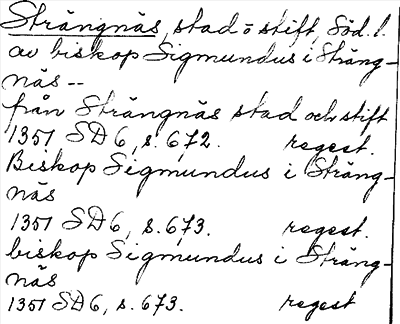 Strängnäs, stad o stift, Söd. l.
av biskop Sigmundus i Sträng-
näs --
från Strängnäs stad och stift
1351 SD 6, s. 672. regest.
Biskop Sigmundus i Sträng-
näs
1351 SD 6, s. 673. regest.
biskop Sigmundus i Sträng-
näs
1351 SD 6, s. 673. regest